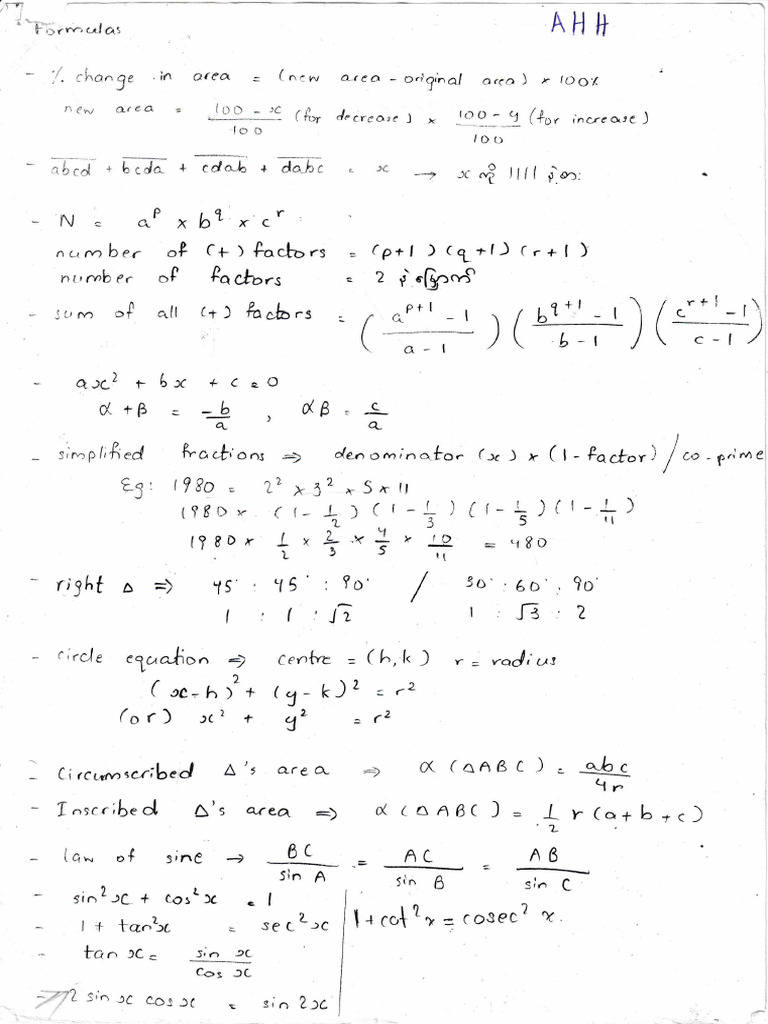 Formulas
AHH
- % change in area = (new area - original area) × 100%
new area = 100 - x / 100 (for decrease) × 100 - y / 100 (for increase)
- a̅b̅c̅d̅ + b̅c̅d̅a̅ + c̅d̅a̅b̅ + d̅a̅b̅c̅ = x → x ကို 1111 နဲ့စား
- N = a^p × b^q × c^r
number of (+) factors = (p+1) (q+1) (r+1)
number of factors = 2 နဲ့မြှောက်
- sum of all (+) factors = (a^(p+1) - 1 / a - 1) (b^(q+1) - 1 / b - 1) (c^(r+1) - 1 / c - 1)
- ax² + bx + c = 0
α + β = -b/a , αβ = c/a
- simplified fractions ⇒ denominator (x) × (1 - factor) / co-prime
Eg: 1980 = 2² × 3² × 5 × 11
1980 × (1 - 1/2) (1 - 1/3) (1 - 1/5) (1 - 1/11)
1980 × 1/2 × 2/3 × 4/5 × 10/11 = 480
- right Δ ⇒ 45° : 45° : 90° / 30° : 60° : 90°
1 : 1 : √2 1 : √3 : 2
- circle equation ⇒ centre = (h, k) r = radius
(x-h)² + (y-k)² = r²
(or) x² + y² = r²
- Circumscribed Δ's area ⇒ α (ΔABC) = abc/4r
- Inscribed Δ's area ⇒ α (ΔABC) = 1/2 r (a+b+c)
- law of sine → BC / sin A = AC / sin B = AB / sin C
- sin²x + cos²x = 1
- 1 + tan²x = sec²x
1 + cot²x = cosec²x.
- tan x = sin x / cos x
- 2 sin x cos x = sin 2x